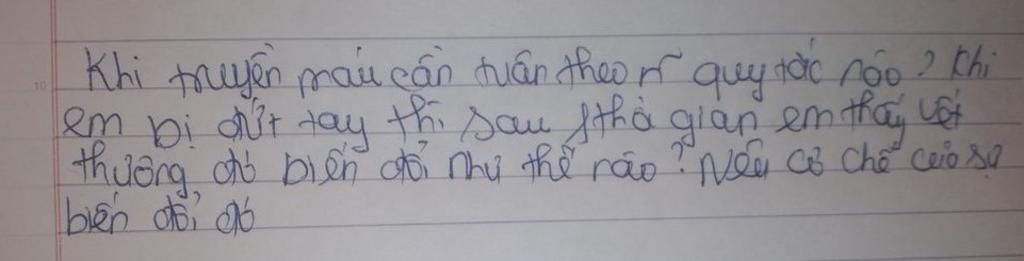 Khi truyền máu cần tuân theo n~ quy tắc nào? Khi
em bị đứt tay thì sau 1 thờ gian em thấy vết
thương đó biến đổi như thế nào? Nêu cơ chế của sự
biến đổi đó